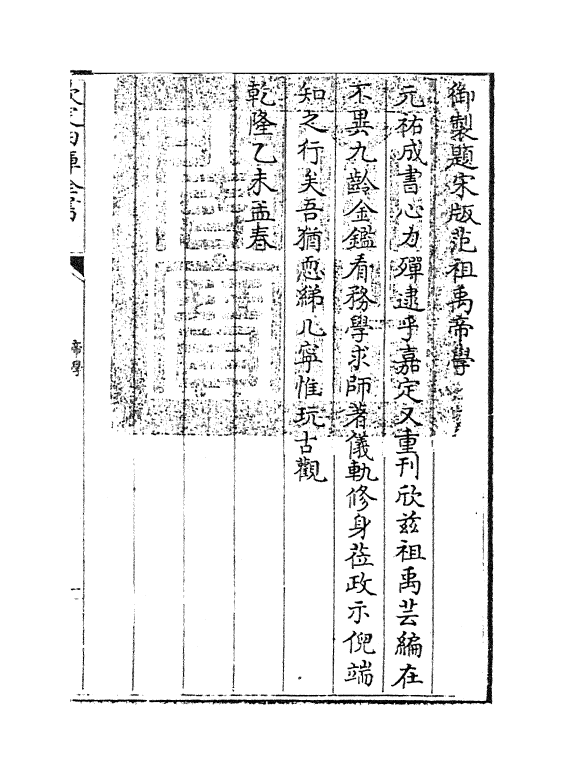 御製題宋版范祖禹帝學
元祐成書心力殫逮乎嘉定又重刊欣兹祖禹芸編在
不異九齡金鑑看務學求師著儀軌修身莅政示倪端
知之行矣吾猶恧綈几寜惟玩古觀
乾隆乙未孟春
欽定四庫全書
帝學
一